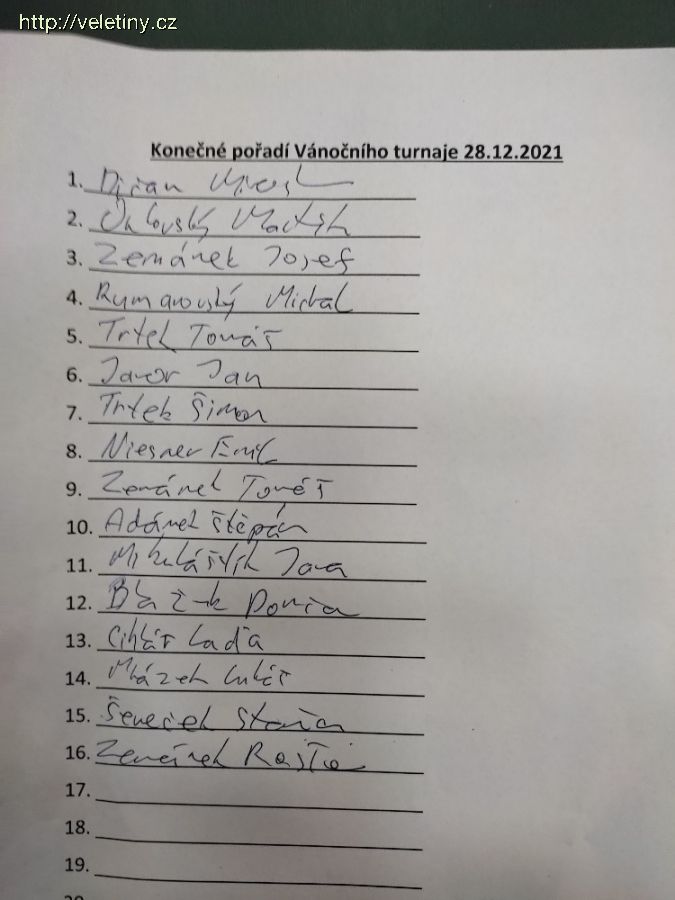 http://veletiny.cz
Konečné pořadí Vánočního turnaje 28.12.2021
1.
2.
3. Zemánek Josef
4. Rumanovský Michal
5. Trtek Tomáš
6. Javor Jan
7. Trtek Šimon
8. Niesner Emil
9. Zemánek Tomáš
10. Adámek Štěpán
11. Jana
12.
13. Cihlář Laďa
14. Lukáš
15.
16. Zemánek Rosťa
17.
18.
19.